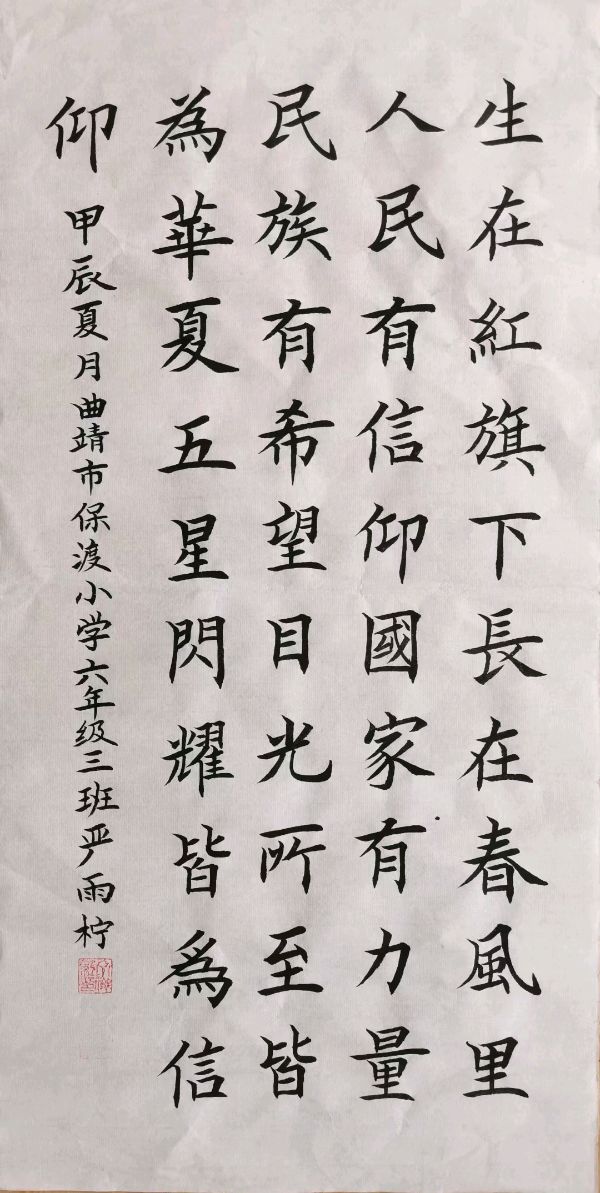 生在紅旗下長在春風里
人民有信仰國家有力量
民族有希望目光所至皆
為華夏五星閃耀皆爲信
仰
甲辰夏月曲靖市保渡小学六年级三班严雨柠